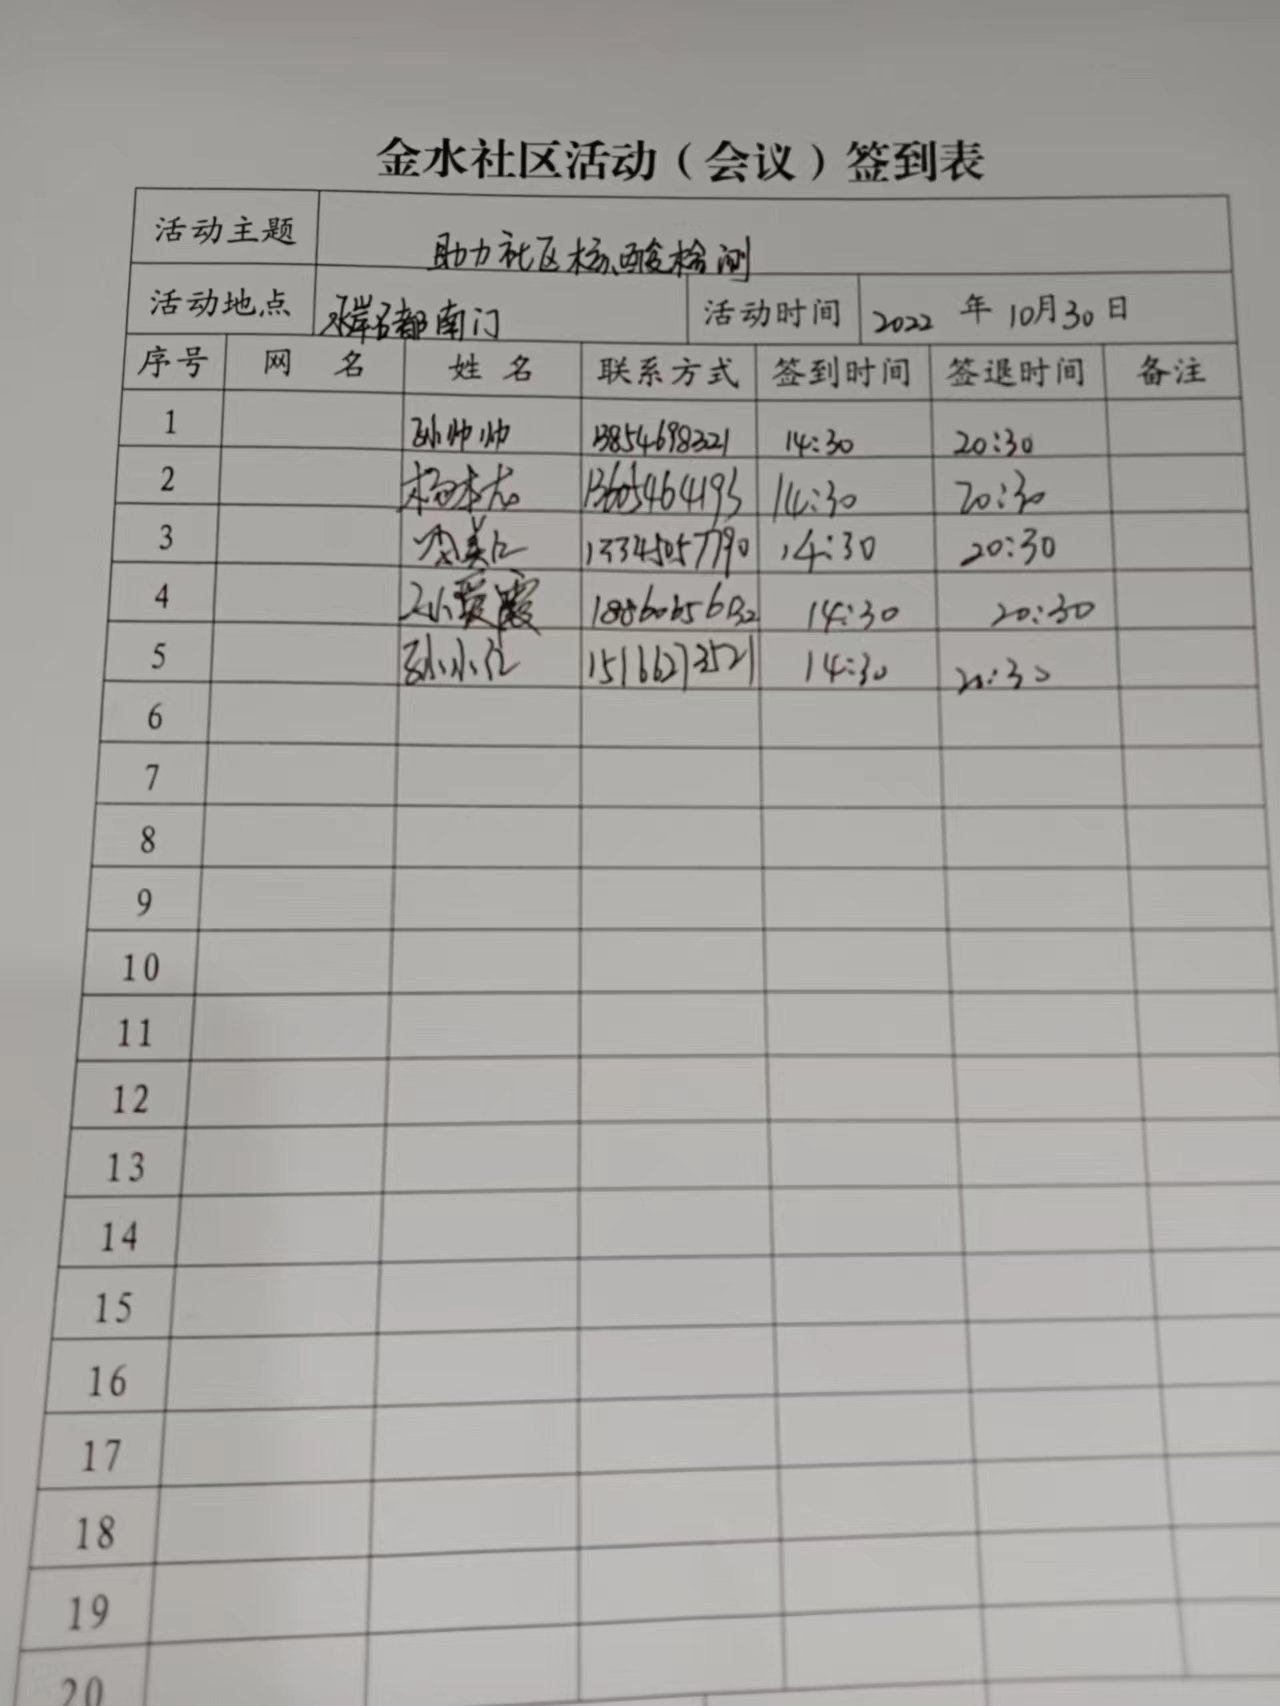 金水社区活动（会议）签到表
活动主题 助力社区核酸检测
活动地点 南门 活动时间 2022 年 10月30日
序号 网 名 姓 名 联系方式 签到时间 签退时间 备注
1 孙帅帅 13854698321 14:30 20:30
2 13605464193 14:30 20:30
3 13345057790 14:30 20:30
4 孙爱霞 14:30 20:30
5 孙小 15166273521 14:30 20:30
6
7
8
9
10
11
12
13
14
15
16
17
18
19
20